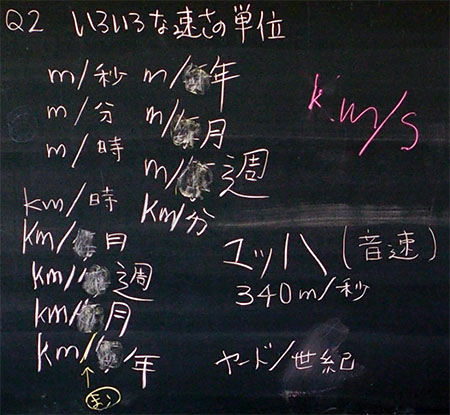 Q2 いろいろな速さの単位
m/秒
m/分
m/時
km/時
km/月
km/週
km/月
km/年
まい
m/年
m/月
m/週
km/分
k.m/s
マッハ(音速)
340m/秒
ヤード/世紀